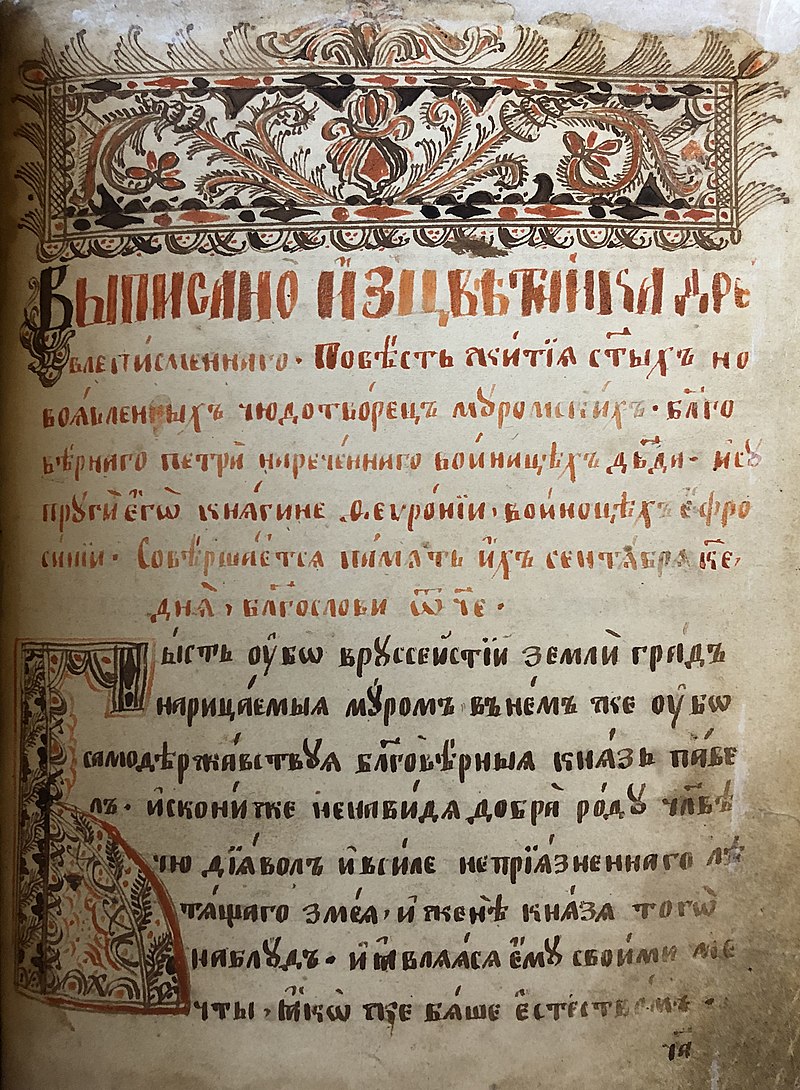 Выписано и҆з̾ цвѣтника дре
влепи́сменнаго. Повѣ́сть жи́тїѧ ст҃ыхъ но
воѧвле́нныхъ чюдотво́рецъ мꙋ́ромскихъ. бл҃го
вѣ́рнаго петра̀ нарече́ннаго во и́нацѣхъ дв҃да. и҆ сꙋ
прꙋ́ги є҆гѡ̀ кнѧги́не ѳ.еѵро́нїи, во и́ноцѣхъ є҆фро
си́нїи. Соверша́етсѧ па́мѧть и҆́хъ сентѧбрѧ к҃е,
днѧ̀, бл҃гослови ѿч҃е.
Бы́сть ᲂу҆́бѡ в рꙋссе́йстїй землѝ гра́дъ
нарица́емыѧ мꙋ́ромъ в не́мъ же ᲂу҆́бѡ
самодержа́вствꙋѧ бл҃говѣ́рныѧ кнѧ́зь па́ве
лъ. и҆скони́ же ненави́дѧ добра̀ ро́дꙋ чл҃вѣ
чю дїѧ́волъ и҆ всиле непрїѧ́зненнаго лѣ
та́щаго змеѧ, и҆ женѣ̀ кнѧ́зѧ тогѡ̀
на блꙋ́дъ. и҆ ꙗ҆влѧ́асѧ є҆мꙋ̀ свои́ми ме
чты̀, ꙗ҆́кѡ же бѧ́ше є҆стество́мъ.
ча